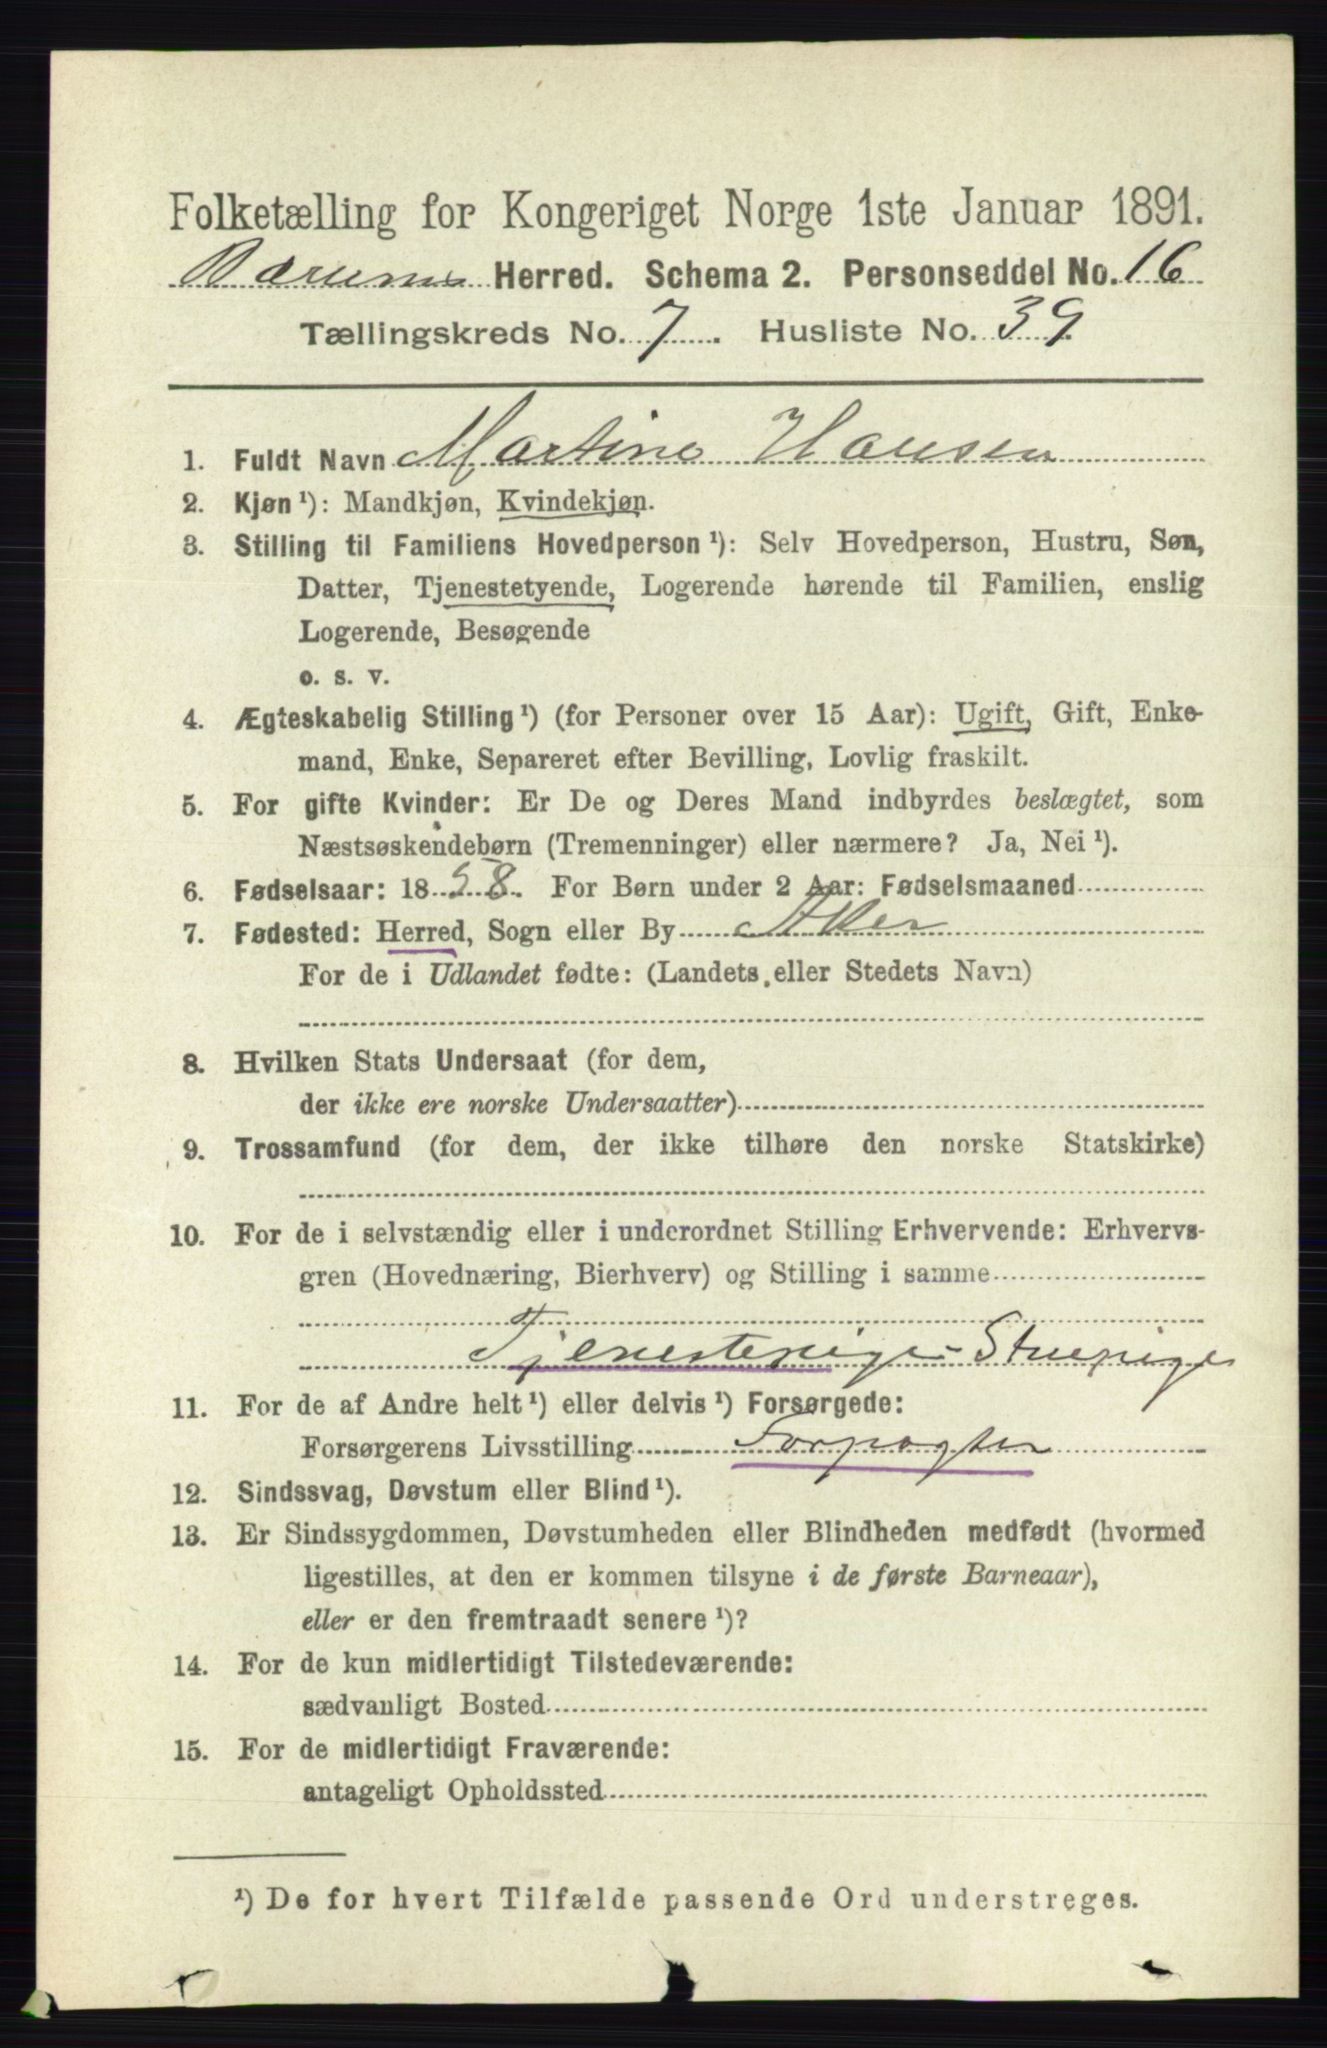 Folketælling for Kongeriget Norge 1ste Januar 1891.
Bærums Herred. Schema 2. Personseddel No. 16
Tællingskreds No. 7. Husliste No. 39.
1. Fuldt Navn Martine Hansen
2. Kjøn¹): Mandkjøn, Kvindekjøn.
3. Stilling til Familiens Hovedperson¹): Selv Hovedperson, Hustru, Søn,
Datter, Tjenestetyende, Logerende hørende til Familien, enslig
Logerende, Besøgende
o. s. v.
4. Ægteskabelig Stilling¹) (for Personer over 15 Aar): Ugift, Gift, Enke-
mand, Enke, Separeret efter Bevilling, Lovlig fraskilt.
5. For gifte Kvinder: Er De og Deres Mand indbyrdes beslægtet, som
Næstsøskendebørn (Tremenninger) eller nærmere? Ja, Nei¹).
6. Fødselsaar: 1858. For Børn under 2 Aar: Fødselsmaaned
7. Fødested: Herred, Sogn eller By Aker
For de i Udlandet fødte: (Landets eller Stedets Navn)
8. Hvilken Stats Undersaat (for dem,
der ikke ere norske Undersaatter)
9. Trossamfund (for dem, der ikke tilhøre den norske Statskirke)
10. For de i selvstændig eller i underordnet Stilling Erhvervende: Erhvervs-
gren (Hovednæring, Bierhverv) og Stilling i samme
Tjenestepige - Stuepige
11. For de af Andre helt¹) eller delvis¹) Forsørgede:
Forsørgerens Livsstilling Forpagter
12. Sindssvag, Døvstum eller Blind¹).
13. Er Sindssygdommen, Døvstumheden eller Blindheden medfødt (hvormed
ligestilles, at den er kommen tilsyne i de første Barneaar),
eller er den fremtraadt senere¹)?
14. For de kun midlertidigt Tilstedeværende:
sædvanligt Bosted
15. For de midlertidigt Fraværende:
antageligt Opholdssted
¹) De for hvert Tilfælde passende Ord understreges.